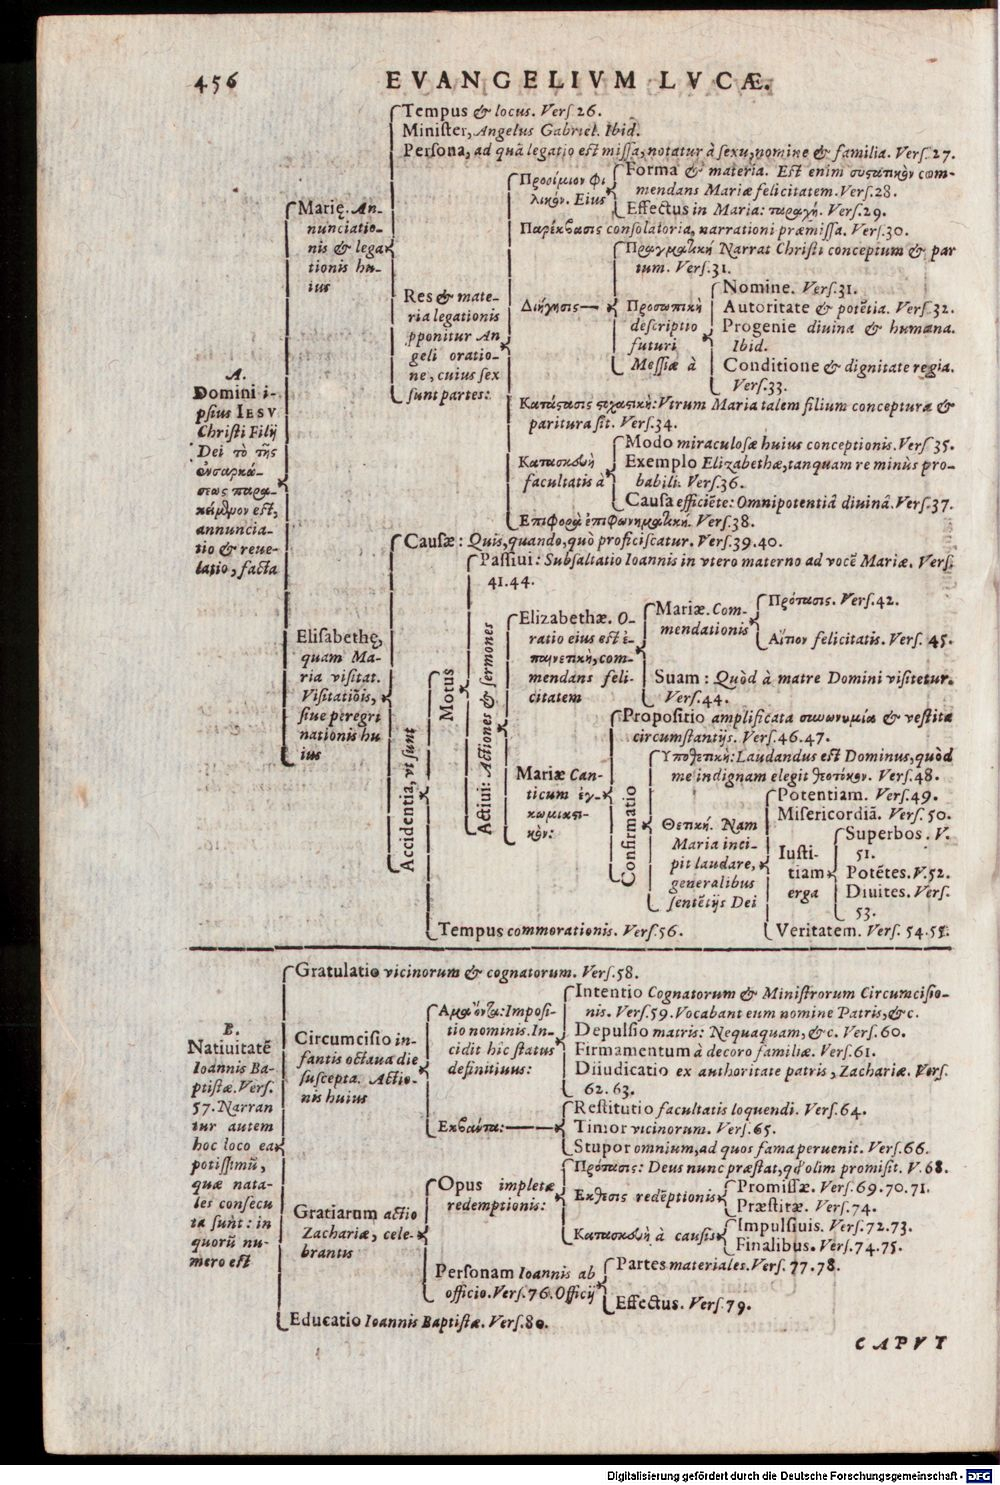 456
EVANGELIVM LVCÆ.
Tempus & locus. Verſ.26.
Miniſter, Angelus Gabriel. Ibid.
Perſona, ad quā legatio eſt miſſa, notatur à ſexu, nomine & familia. Verſ.27.
Marię. An-
nunciatio-
nis & lega
tionis hu-
ius
Res & mate-
ria legationis
pponitur An
geli oratio-
ne, cuius ſex
ſunt partes:
Προοίμιον φι
λικόν. Eius
Forma & materia. Eſt enim συστατικὸν com-
mendans Mariæ felicitatem. Verſ.28.
Effectus in Maria: ταραχή. Verſ.29.
Παρέκβασις conſolatoria, narrationi præmiſſa. Verſ.30.
Διήγησις
Πραγματική Narrat Chriſti conceptum & par
tum. Verſ.31.
Προσωπικὴ
deſcriptio
futuri
Meſſiæ à
Nomine. Verſ.31.
Autoritate & potētia. Verſ.32.
Progenie diuina & humana.
Ibid.
Conditione & dignitate regia.
Verſ.33.
Κατάστασις στοχαστική: Vtrum Maria talem filium conceptura &
paritura ſit. Verſ.34.
Κατασκευὴ
facultatis à
Modo miraculoſæ huius conceptionis. Verſ 35.
Exemplo Elizabethæ, tanquam re minùs pro-
babili. Verſ.36.
Cauſa efficiēte: Omnipotentiâ diuinâ. Verſ.37.
Επιφορὰ ἐπιφωνηματική. Verſ.38.
A.
Domini i-
pſius IESV
Chriſti Filij
Dei τὸ τῆς
ἐνσαρκώ-
σεως παρα-
κείμενον eſt,
annuncia-
tio & reue-
latio, facta
Eliſabethę,
quam Ma-
ria viſitat.
Viſitatiōis,
ſiue peregri
nationis hu
ius
Cauſæ: Quis, quando, quò proficiſcatur. Verſ.39.40.
Accidentia, vt ſunt
Motus
Paſſiui: Subſaltatio Ioannis in vtero materno ad vocē Mariæ. Verſ.
41.44.
Actiui: Actiones & ſermones
Elizabethæ. O-
ratio eius eſt ἐ-
παινετικὴ, com-
mendans feli-
citatem
Mariæ. Com-
mendationis
Πρότασις. Verſ.42.
Αἴτιον felicitatis. Verſ. 45.
Suam: Quòd à matre Domini viſitetur.
Verſ.44.
Mariæ Can-
ticum ἐγ-
κωμιαστι-
κὸν:
Propoſitio amplificata συνωνυμίᾳ & veſtita
circumſtantijs. Verſ.46.47.
Confirmatio
Υποθετική: Laudandus eſt Dominus, quòd
me indignam elegit θεοτόκον. Verſ.48.
Θετική. Nam
Maria inci-
pit laudare,
generalibus
ſentētijs Dei
Potentiam. Verſ.49.
Miſericordiā. Verſ.50.
Iuſti-
tiam
erga
Superbos. V.
51.
Potētes. V.52.
Diuites. Verſ.
53.
Veritatem. Verſ. 54.55.
Tempus commorationis. Verſ.56.
B.
Natiuitatē
Ioannis Ba-
ptiſtæ. Verſ.
57. Narran
tur autem
hoc loco ea
potiſſimū,
quæ nata-
les conſecu
ta ſunt: in
quorū nu-
mero eſt
Gratulatio vicinorum & cognatorum. Verſ.58.
Circumciſio in-
fantis octaua die
ſuſcepta. Actio-
nis huius
Αμαιόντα: Impoſi-
tio nominis. In-
cidit hîc ſtatus
definitiuus:
Intentio Cognatorum & Miniſtrorum Circumciſio-
nis. Verſ.59. Vocabant eum nomine Patris, &c.
Depulſio matris: Nequaquam, &c. Verſ.60.
Firmamentum à decoro familiæ. Verſ.61.
Diiudicatio ex authoritate patris, Zachariæ. Verſ.
62.63.
Εκβαίντα:
Reſtitutio facultatis loquendi. Verſ.64.
Timor vicinorum. Verſ.65.
Stupor omnium, ad quos fama peruenit. Verſ.66.
Gratiarum actio
Zachariæ, cele-
brantis
Opus impletæ
redemptionis:
Πρότασις: Deus nunc præſtat, qd' olim promiſit. V.68.
Εκθεσις redēptionis
Promiſſæ. Verſ.69.70.71.
Præſtitæ. Verſ.74.
Κατασκευὴ à cauſis
Impulſiuis. Verſ.72.73.
Finalibus. Verſ.74.75.
Perſonam Ioannis ab
officio. Verſ.76. Officij
Partes materiales. Verſ.77.78.
Effectus. Verſ.79.
Educatio Ioannis Baptiſtæ. Verſ.80.
CAPVT
Digitalisierung gefördert durch die Deutsche Forschungsgemeinschaft - DFG